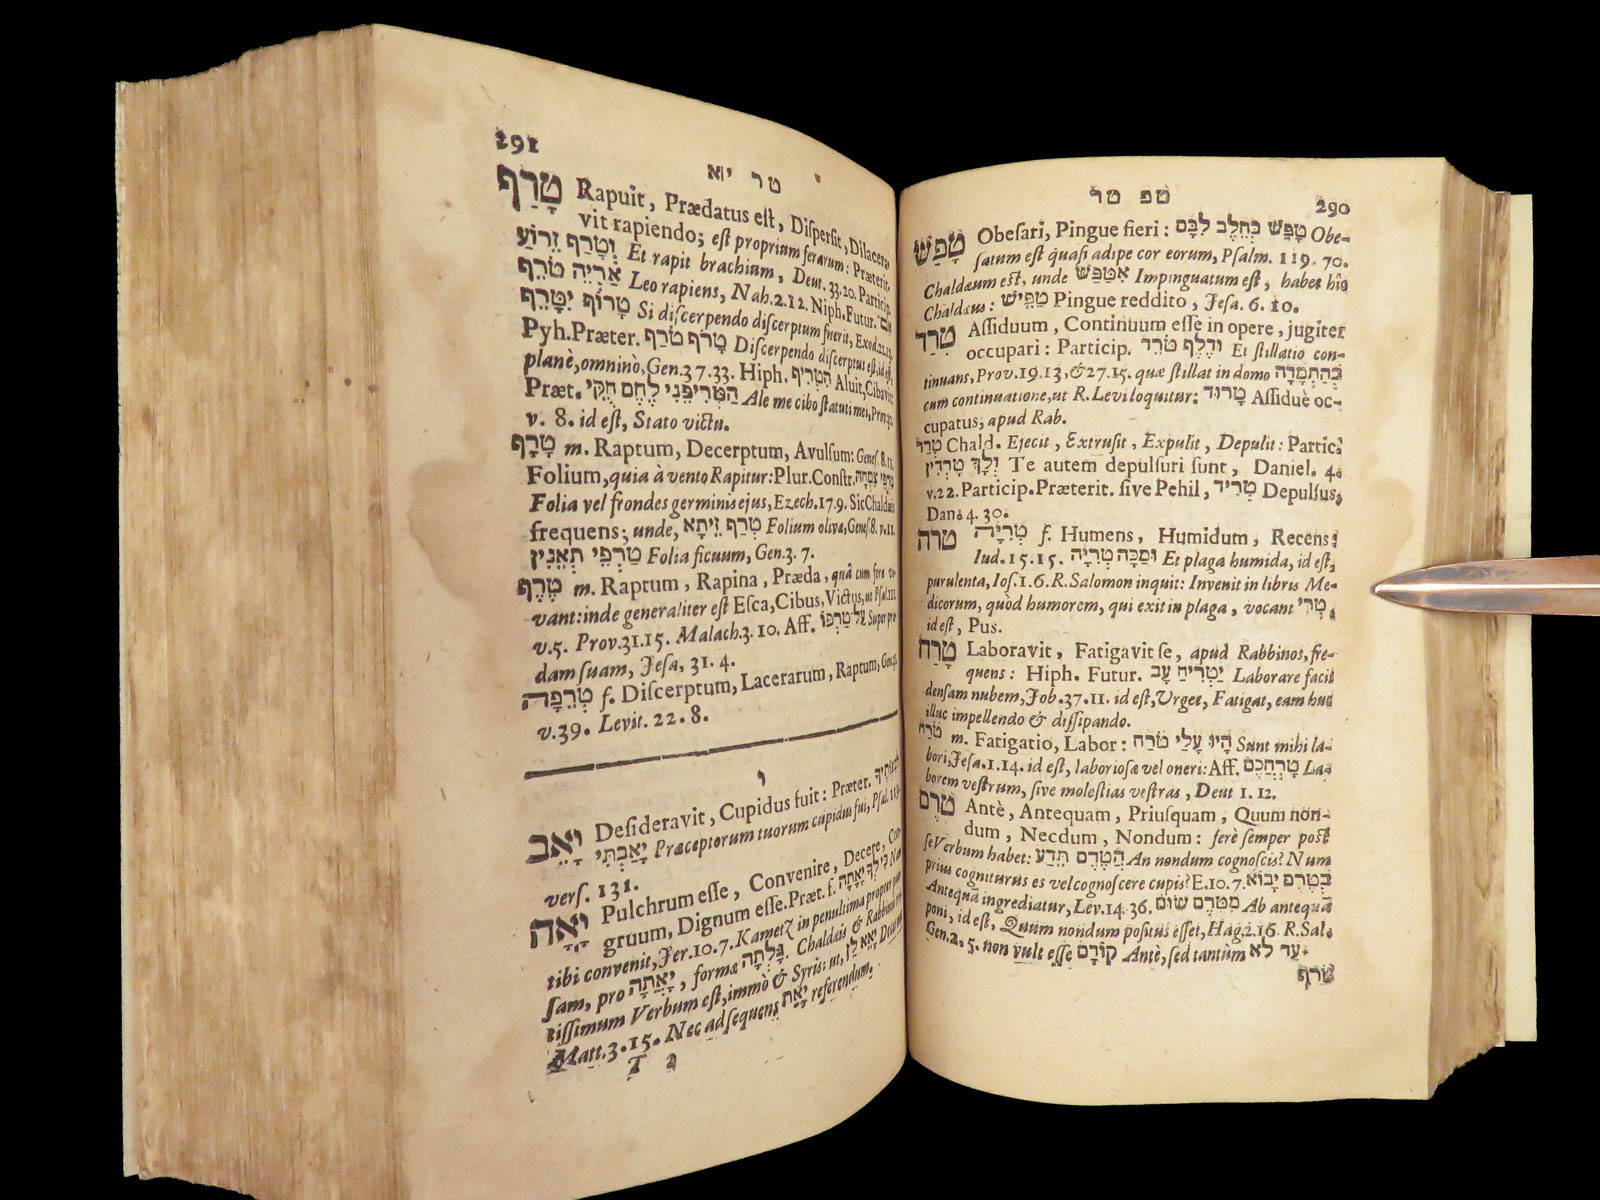 טפ טר 290
טָפַשׁ Obeſari, Pingue fieri: טָפַשׁ כְּחֵלֶב לִבָּם Obe-
ſatum eſt quaſi adipe cor eorum, Pſalm. 119. 70.
Chaldæum eſt, unde אִטַּפַּשׁ Impinguatum eſt, habet hîc
Chaldæus: טַפֵּישׁ Pingue reddito, Jeſa. 6. 10.
טָרַד Aſſiduum, Continuum eſſe in opere, jugiter
occupari: Particip. וְדֶלֶף טֹרֵד Et ſtillatio con-
tinuans, Prov. 19. 13, & 27. 15. quæ ſtillat in domo בְּהַתְמָדָה
cum continuatione, ut R. Levi loquitur: טָרוּד Aſſiduè oc-
cupatus, apud Rab.
טְרַד Chald. Ejecit, Extruſit, Expulit, Depulit: Partic.
וְלָךְ טָרְדִין Te autem depulſuri ſunt, Daniel. 4.
v. 22. Particip. Præterit. ſive Pehil, טְרִיד Depulſus,
Dan. 4. 30.
טרה טְרִיָּה f. Humens, Humidum, Recens:
Iud. 15. 15. וּמַכָּה טְרִיָּה Et plaga humida, id eſt,
purulenta, Ioſ. 1. 6. R. Salomon inquit: Invenit in libris Me-
dicorum, quòd humorem, qui exit in plaga, vocant טְרִי,
id eſt, Pus.
טָרַח Laboravit, Fatigavit ſe, apud Rabbinos, fre-
quens: Hiph. Futur. יַטְרִיחַ עָב Laborare facit
denſam nubem, Job. 37. 11. id eſt, Urget, Fatigat, eam huc
illuc impellendo & diſſipando.
טֹרַח m. Fatigatio, Labor: הָיוּ עָלַי טֹרַח Sunt mihi la-
bori, Jeſa. 1. 14. id eſt, laborioſæ vel oneri: Aff. טָרְחֲכֶם La-
borem veſtrum, ſive moleſtias veſtras, Deut 1. 12.
טֶרֶם Antè, Antequam, Priuſquam, Quum non-
dum, Necdum, Nondum: ferè ſemper poſt
ſe Verbum habet: הֲטֶרֶם תֵּדַע An nondum cognoſcis? Num
prius cogniturus es vel cognoſcere cupis? E. 10. 7. בְּטֶרֶם יָבוֹא
Antequã ingrediatur, Lev. 14. 36. מִטֶּרֶם שׂוּם Ab antequã
poni, id eſt, Quum nondum poſitus eſſet, Hag. 2. 16. R. Sal.
Gen. 2. 5. non vult eſſe קוֹדֶם Antè, ſed tantùm עַד לֹא.
טרף
291 טר יא
טָרַף Rapuit, Prædatus eſt, Diſperſit, Dilacera-
vit rapiendo; eſt proprium ferarum: Præterit.
וְטָרַף זְרוֹעַ Et rapit brachium, Deut. 33. 20. Particip.
אַרְיֵה טֹרֵף Leo rapiens, Nah. 2. 12. Niph. Futur. אִם
טָרוֹף יִטָּרֵף Si diſcerpendo diſcerptum fuerit, Exod. 22. 13.
Pyh. Præter. טָרֹף טֹרַף Diſcerpendo diſcerptus eſt, id eſt,
planè, omninò, Gen. 37. 33. Hiph. הִטְרִיף Aluit, Cibavit:
Præt. הַטְרִיפֵנִי לֶחֶם חֻקִּי Ale me cibo ſtatuti mei, Prov. 30.
v. 8. id eſt, Stato victu.
טָרָף m. Raptum, Decerptum, Avulſum: Geneſ. 8. 11.
Folium, quia à vento Rapitur: Plur. Conſtr. טַרְפֵּי צִמְחָהּ
Folia vel frondes germinis ejus, Ezech. 17. 9. Sic Chaldæis
frequens; unde, טְרַף זֵיתָא Folium olivæ, Geneſ 8. v. 11.
טַרְפֵי תְאֵנִין Folia ficuum, Gen. 3. 7.
טֶרֶף m. Raptum, Rapina, Præda, quâ cum feræ vi-
vant: inde generaliter eſt Eſca, Cibus, Victus, ut Pſal. 111.
v. 5. Prov. 31. 15. Malach. 3. 10. Aff. עַל טַרְפּוֹ Super præ-
dam ſuam, Jeſa, 31. 4.
טְרֵפָה f. Diſcerptum, Lacerarum, Raptum, Gen. 31.
v. 39. Levit. 22. 8.
י
יָאַב Deſideravit, Cupidus fuit: Præter.
יָאָבְתִּי Præceptorum tuorum cupidus fui, Pſal. 119.
verſ. 131.
יָאָה Pulchrum eſſe, Convenire, Decere, Con-
gruum, Dignum eſſe. Præt. f. כִּי לְךָ יָאָתָה Nam
tibi convenit, Jer. 10. 7. Kametz in penultima propter pau-
ſam, pro יָאֲתָה, formæ גָּלְתָה. Chaldæis & Rabbinis
tiſſimum Verbum eſt, immò & Syris: ut, יָאֵא לַן Decet nos
Matt. 3. 15. Nec ad ſequens יָאַת referendum.
T 2